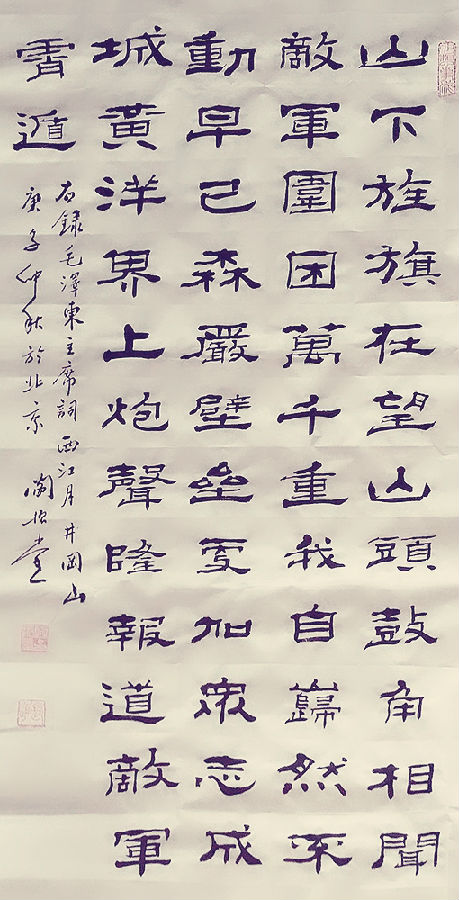 山下旌旗在望山頭鼓角相聞
敵軍圍困萬千重我自巋然不
動早已森嚴壁壘更加眾志成
城黃洋界上炮聲隆報道敵軍
霄遁
右錄毛澤東主席詞西江月井岡山
庚子仲秋於北京